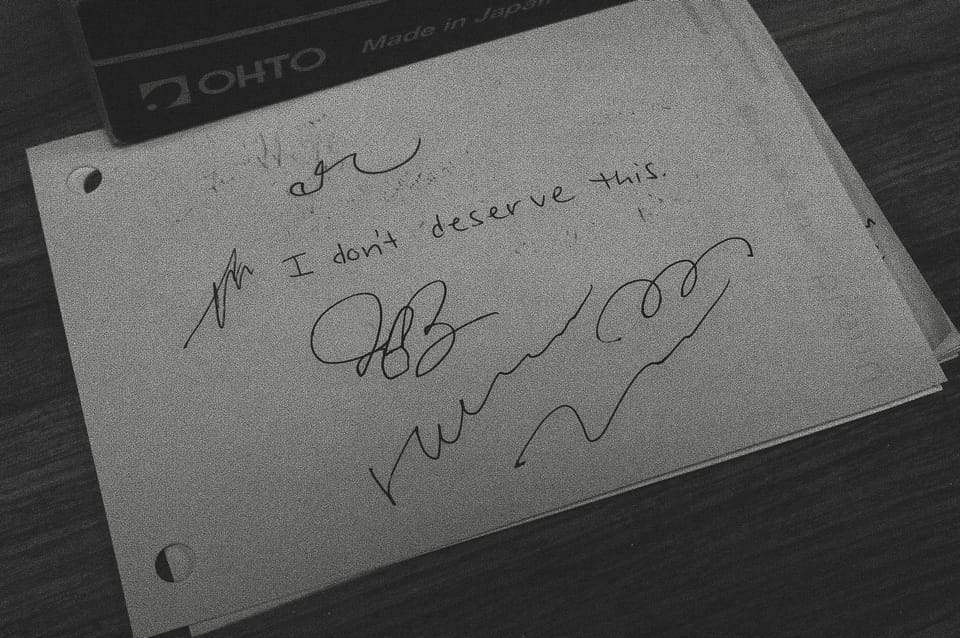 OHTO Made in Japan
I don't deserve this.